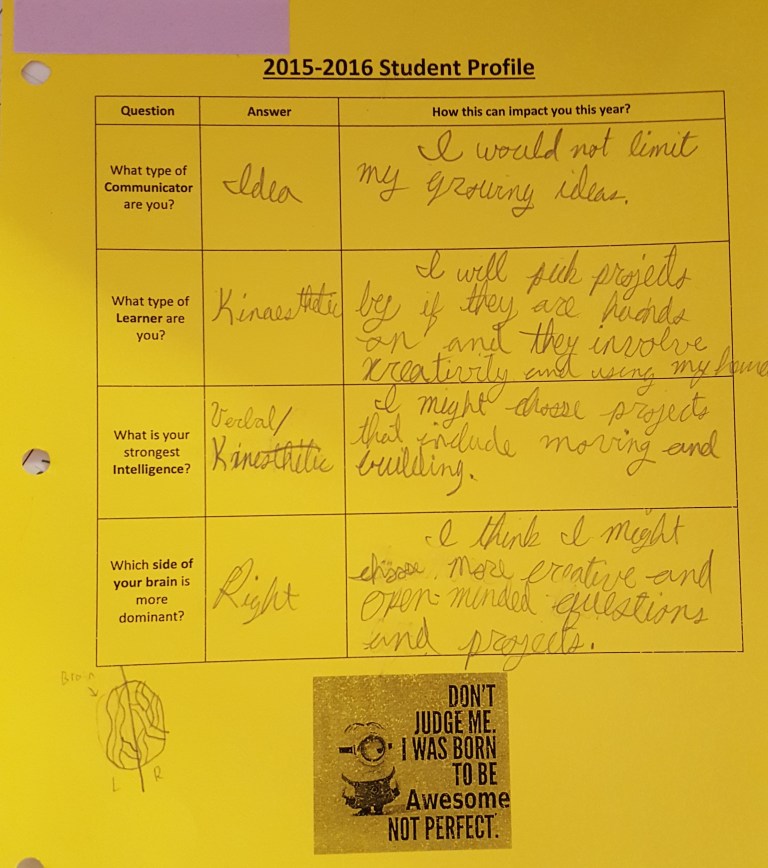 2015-2016 Student Profile
Question
Answer
How this can impact you this year?
What type of
Communicator
are you?
Idea
I would not limit
my growing ideas.
What type of
Learner are
you?
Kinaesthetic
I will pick projects
by if they are hands
on and they involve
creativity and using my
What is your
strongest
Intelligence?
Verbal/
Kinesthetic
I might choose projects
that include moving and
building.
Which side of
your brain is
more
dominant?
Right
I think I might
choose more creative and
open-minded questions
and projects.
Brain
L R
DON'T
JUDGE ME.
I WAS BORN
TO BE
Awesome
NOT PERFECT.